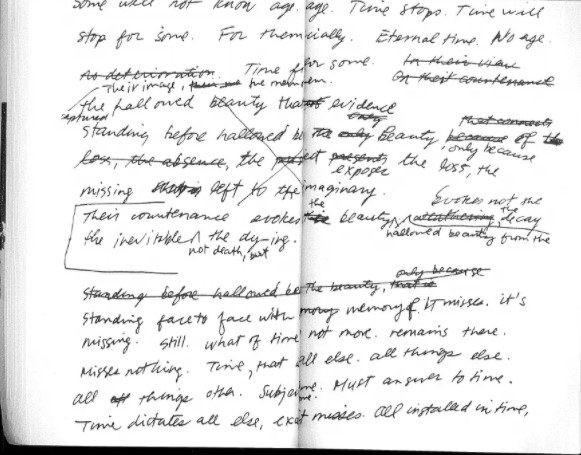 Some will not know age. age. Time stops. Time will
stop for some. For them Eternal time. No age.
No deterioration. Time for some. In their view
On their countenance
Their image, the mem
the hallowed beauty evidence
captured only That connects
Standing before hallowed be only Beauty because of
only because
loss, the absence, the presents the loss, the
expose
missing left to the imaginary.
Evokes not the
Their countenance evokes the beauty, decay
the inevitable the dy-ing. hallowed beauty from the
not death, but
only because
Standing before hallowed be the beauty, that is
Standing face to face with memory. It misses. it's
missing. Still. what of time not move. remains there.
Misses nothing. Time, that all else. all things else.
all things other. Subject Must answer to time.
Time dictates all else, except misses. All installed in time,